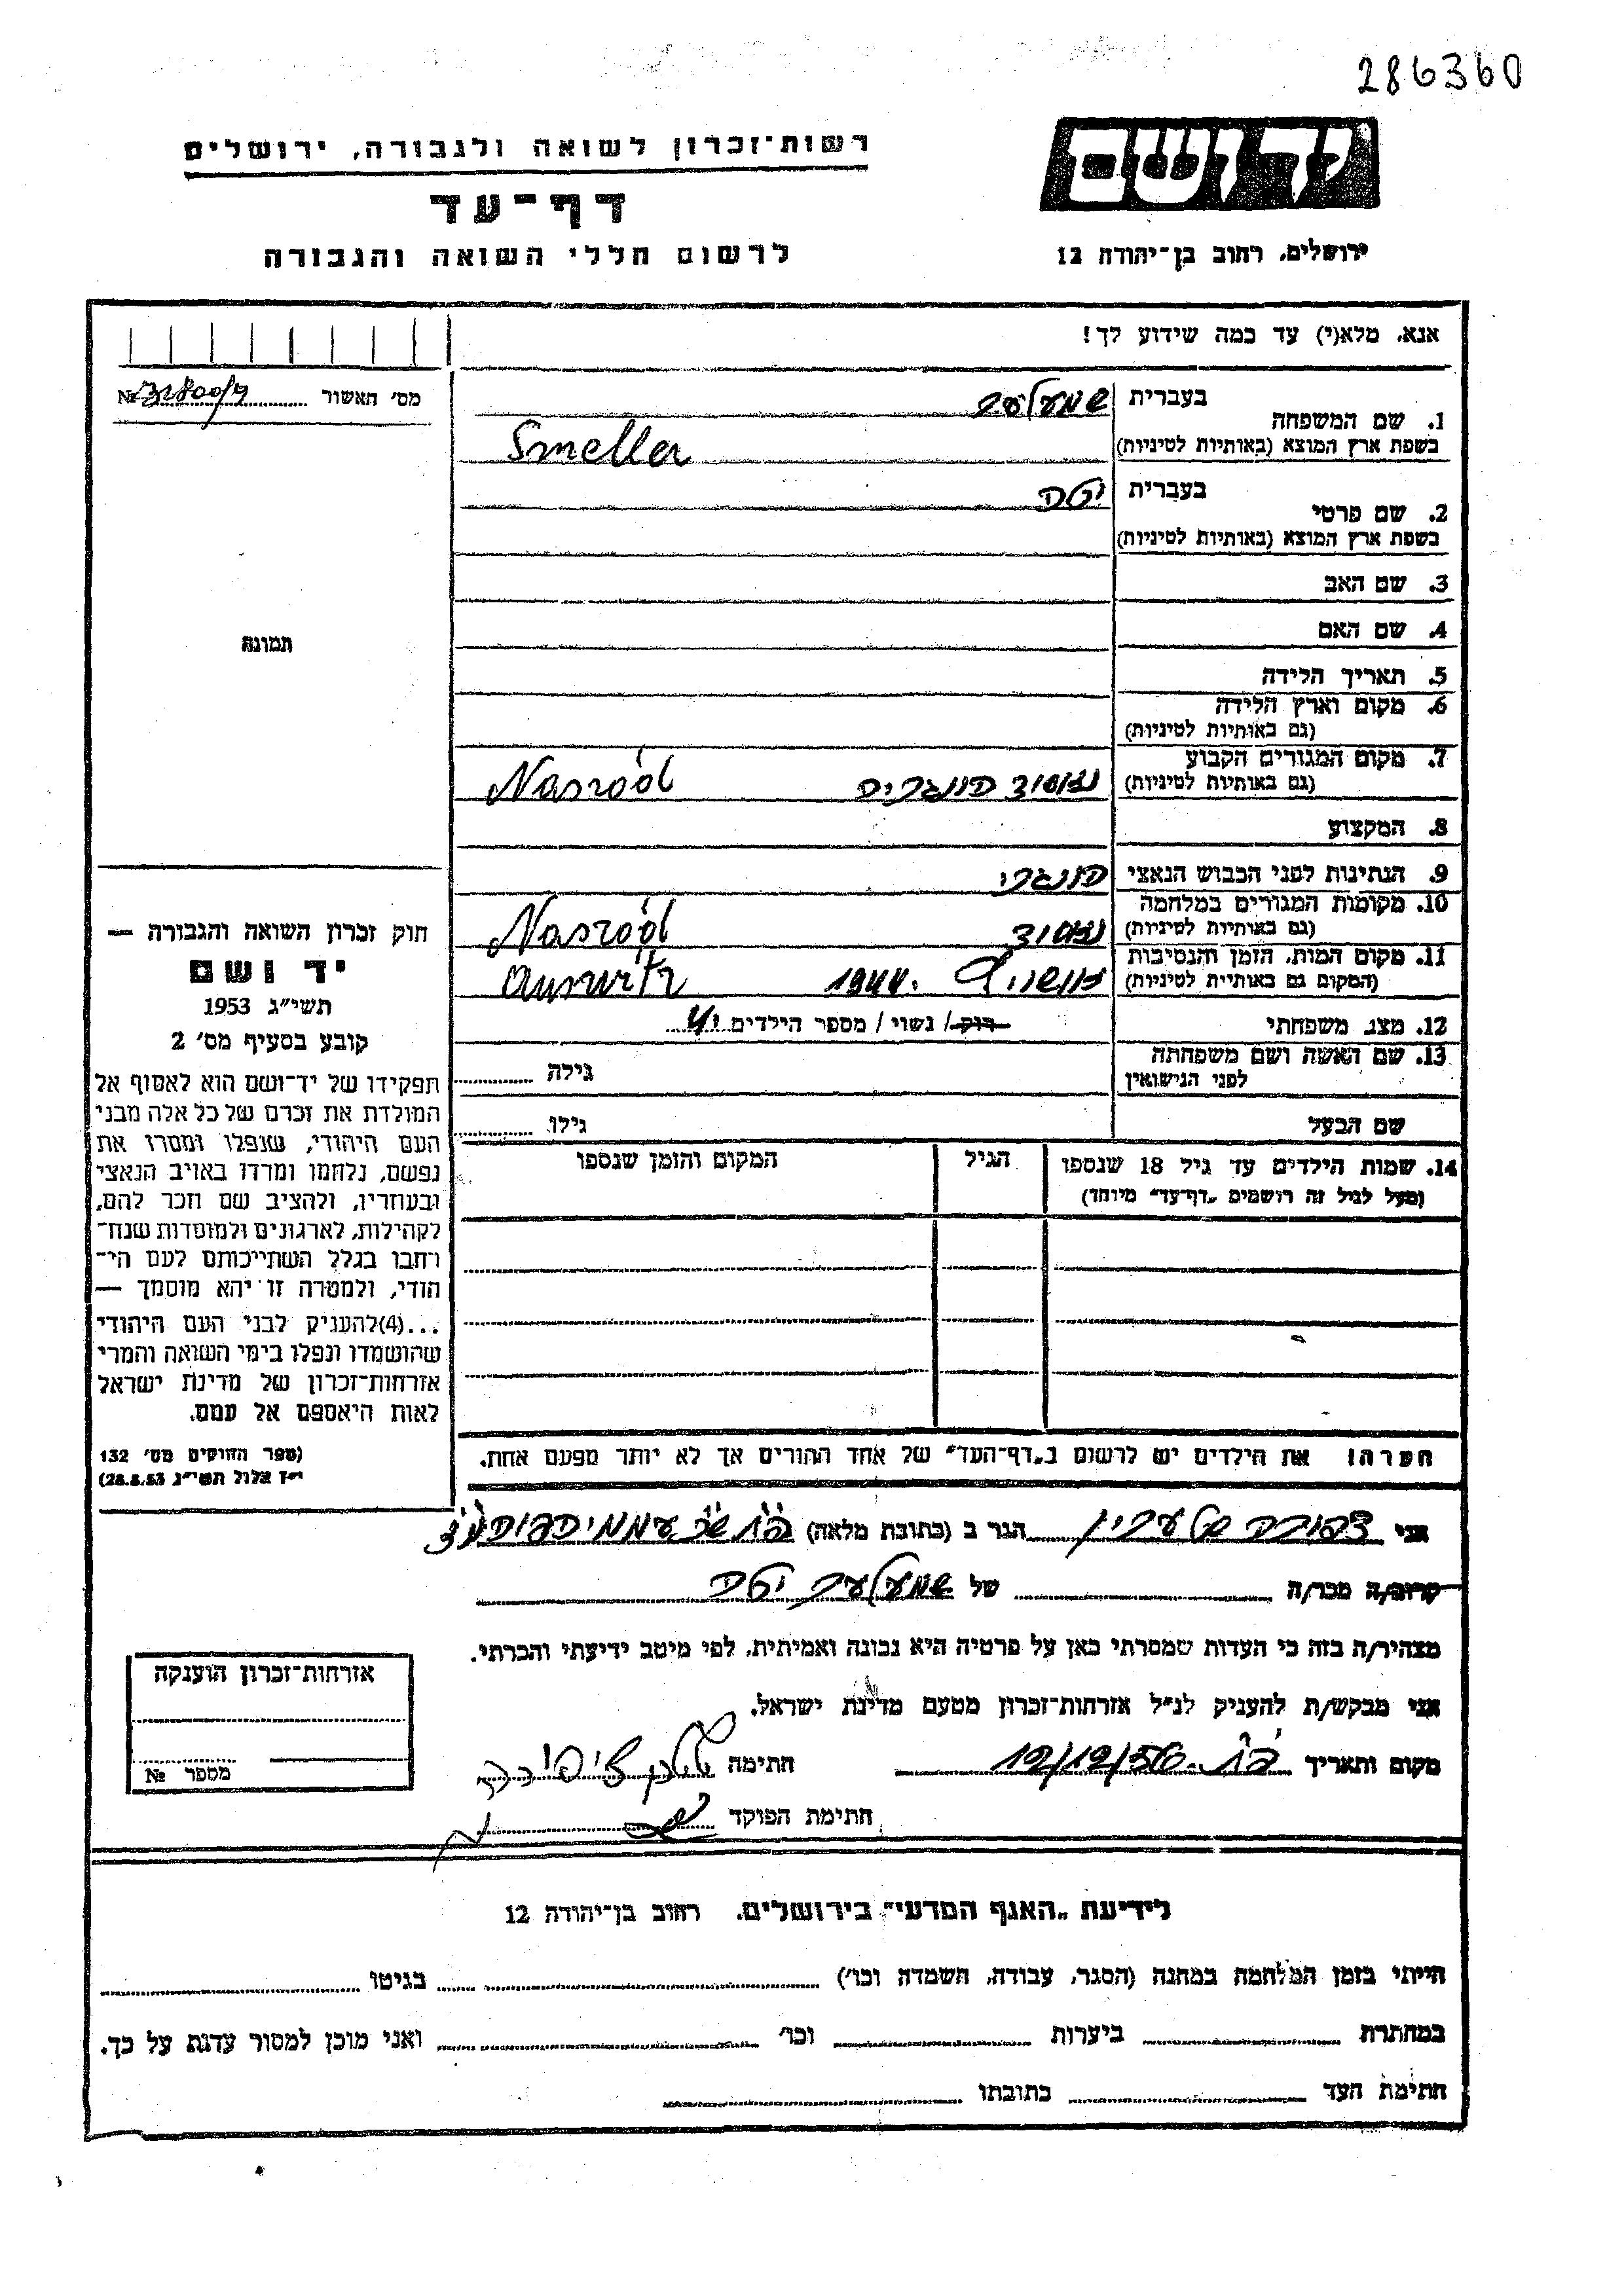 286360
יד ושם
רשות־זכרון לשואה ולגבורה, ירושלים
דף־עד
לרשום חללי השואה והגבורה
ירושלים, רחוב בן־יהודה 12
אנא, מלא(י) עד כמה שידוע לך!
מס' האשור №
1. שם המשפחה
בעברית שמעלער
בשפת ארץ המוצא (באותיות לטיניות) Smeller
2. שם פרטי
בעברית יטה
בשפת ארץ המוצא (באותיות לטיניות)
3. שם האב
4. שם האם
5. תאריך הלידה
6. מקום וארץ הלידה
(גם באותיות לטיניות)
7. מקום המגורים הקבוע
(גם באותיות לטיניות) הונגריה Nasród
8. המקצוע
9. הנתינות לפני הכבוש הנאצי הונגרי
10. מקומות המגורים במלחמה
(גם באותיות לטיניות) Nasród
11. מקום המות, הזמן והנסיבות
(המקום גם באותיות לטיניות) 1944.
12. מצב משפחתי רווק / נשוי / מספר הילדים
13. שם האשה ושם משפחתה
לפני הנישואין גילה
שם הבעל גילו
14. שמות הילדים עד גיל 18 שנספו
(מעל לגיל זה רושמים „דף־עד" מיוחד)
הגיל
המקום והזמן שנספו
הערה! את הילדים יש לרשום ב„דף־העד" של אחד ההורים אך לא יותר מפעם אחת.
תמונה
חוק זכרון השואה והגבורה —
יד ושם
תשי"ג 1953
קובע בסעיף מס' 2
תפקידו של יד־ושם הוא לאסוף אל
המולדת את זכרם של כל אלה מבני
העם היהודי, שנפלו ומסרו את
נפשם, נלחמו ומרדו באויב הנאצי
ובעוזריו, ולהציב שם וזכר להם,
לקהילות, לארגונים ולמוסדות שנח־
רבו בגלל השתייכותם לעם הי־
הודי, ולמטרה זו יהא מוסמך —
...(4)להעניק לבני העם היהודי
שהושמדו ונפלו בימי השואה והמרי
אזרחות־זכרון של מדינת ישראל
לאות היאספם אל עמם.
(ספר החוקים מס' 132
י"ז אלול תשי"ג 28.8.53)
אני הגר ב (כתובת מלאה)
קרוב/ה מכר/ה של שמעלער יטה
מצהיר/ה בזה כי העדות שמסרתי כאן על פרטיה היא נכונה ואמיתית, לפי מיטב ידיעתי והכרתי.
אני מבקש/ת להעניק לנ"ל אזרחות־זכרון מטעם מדינת ישראל.
מקום ותאריך חתימה
חתימת הפוקד
אזרחות־זכרון הוענקה
מספר №
לידיעת „האגף המדעי" בירושלים, רחוב בן־יהודה 12
הייתי בזמן המלחמה במחנה (הסגר, עבודה, השמדה וכו') בגיטו
במחתרת ביערות וכו' ואני מוכן למסור עדות על כך.
חתימת העד כתובתו